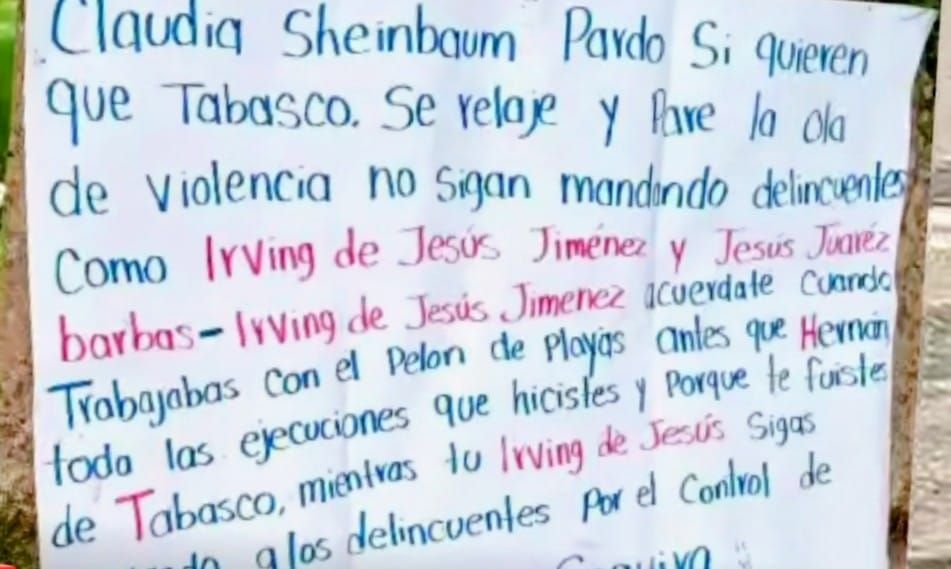 Claudia Sheinbaum Pardo Si quieren
que Tabasco. Se relaje y Pare la ola
de violencia no sigan mandando delincuentes
Como Irving de Jesús Jiménez y Jesús Juaréz
barbas-Irving de Jesús Jimenez acuerdate Cuando
Trabajabas Con el Pelon de Playas antes que Hernán
toda las ejecuciones que hicistes y Porque te fuistes
de Tabasco, mientras tu Irving de Jesús Sigas
a los delincuentes Por el Control de